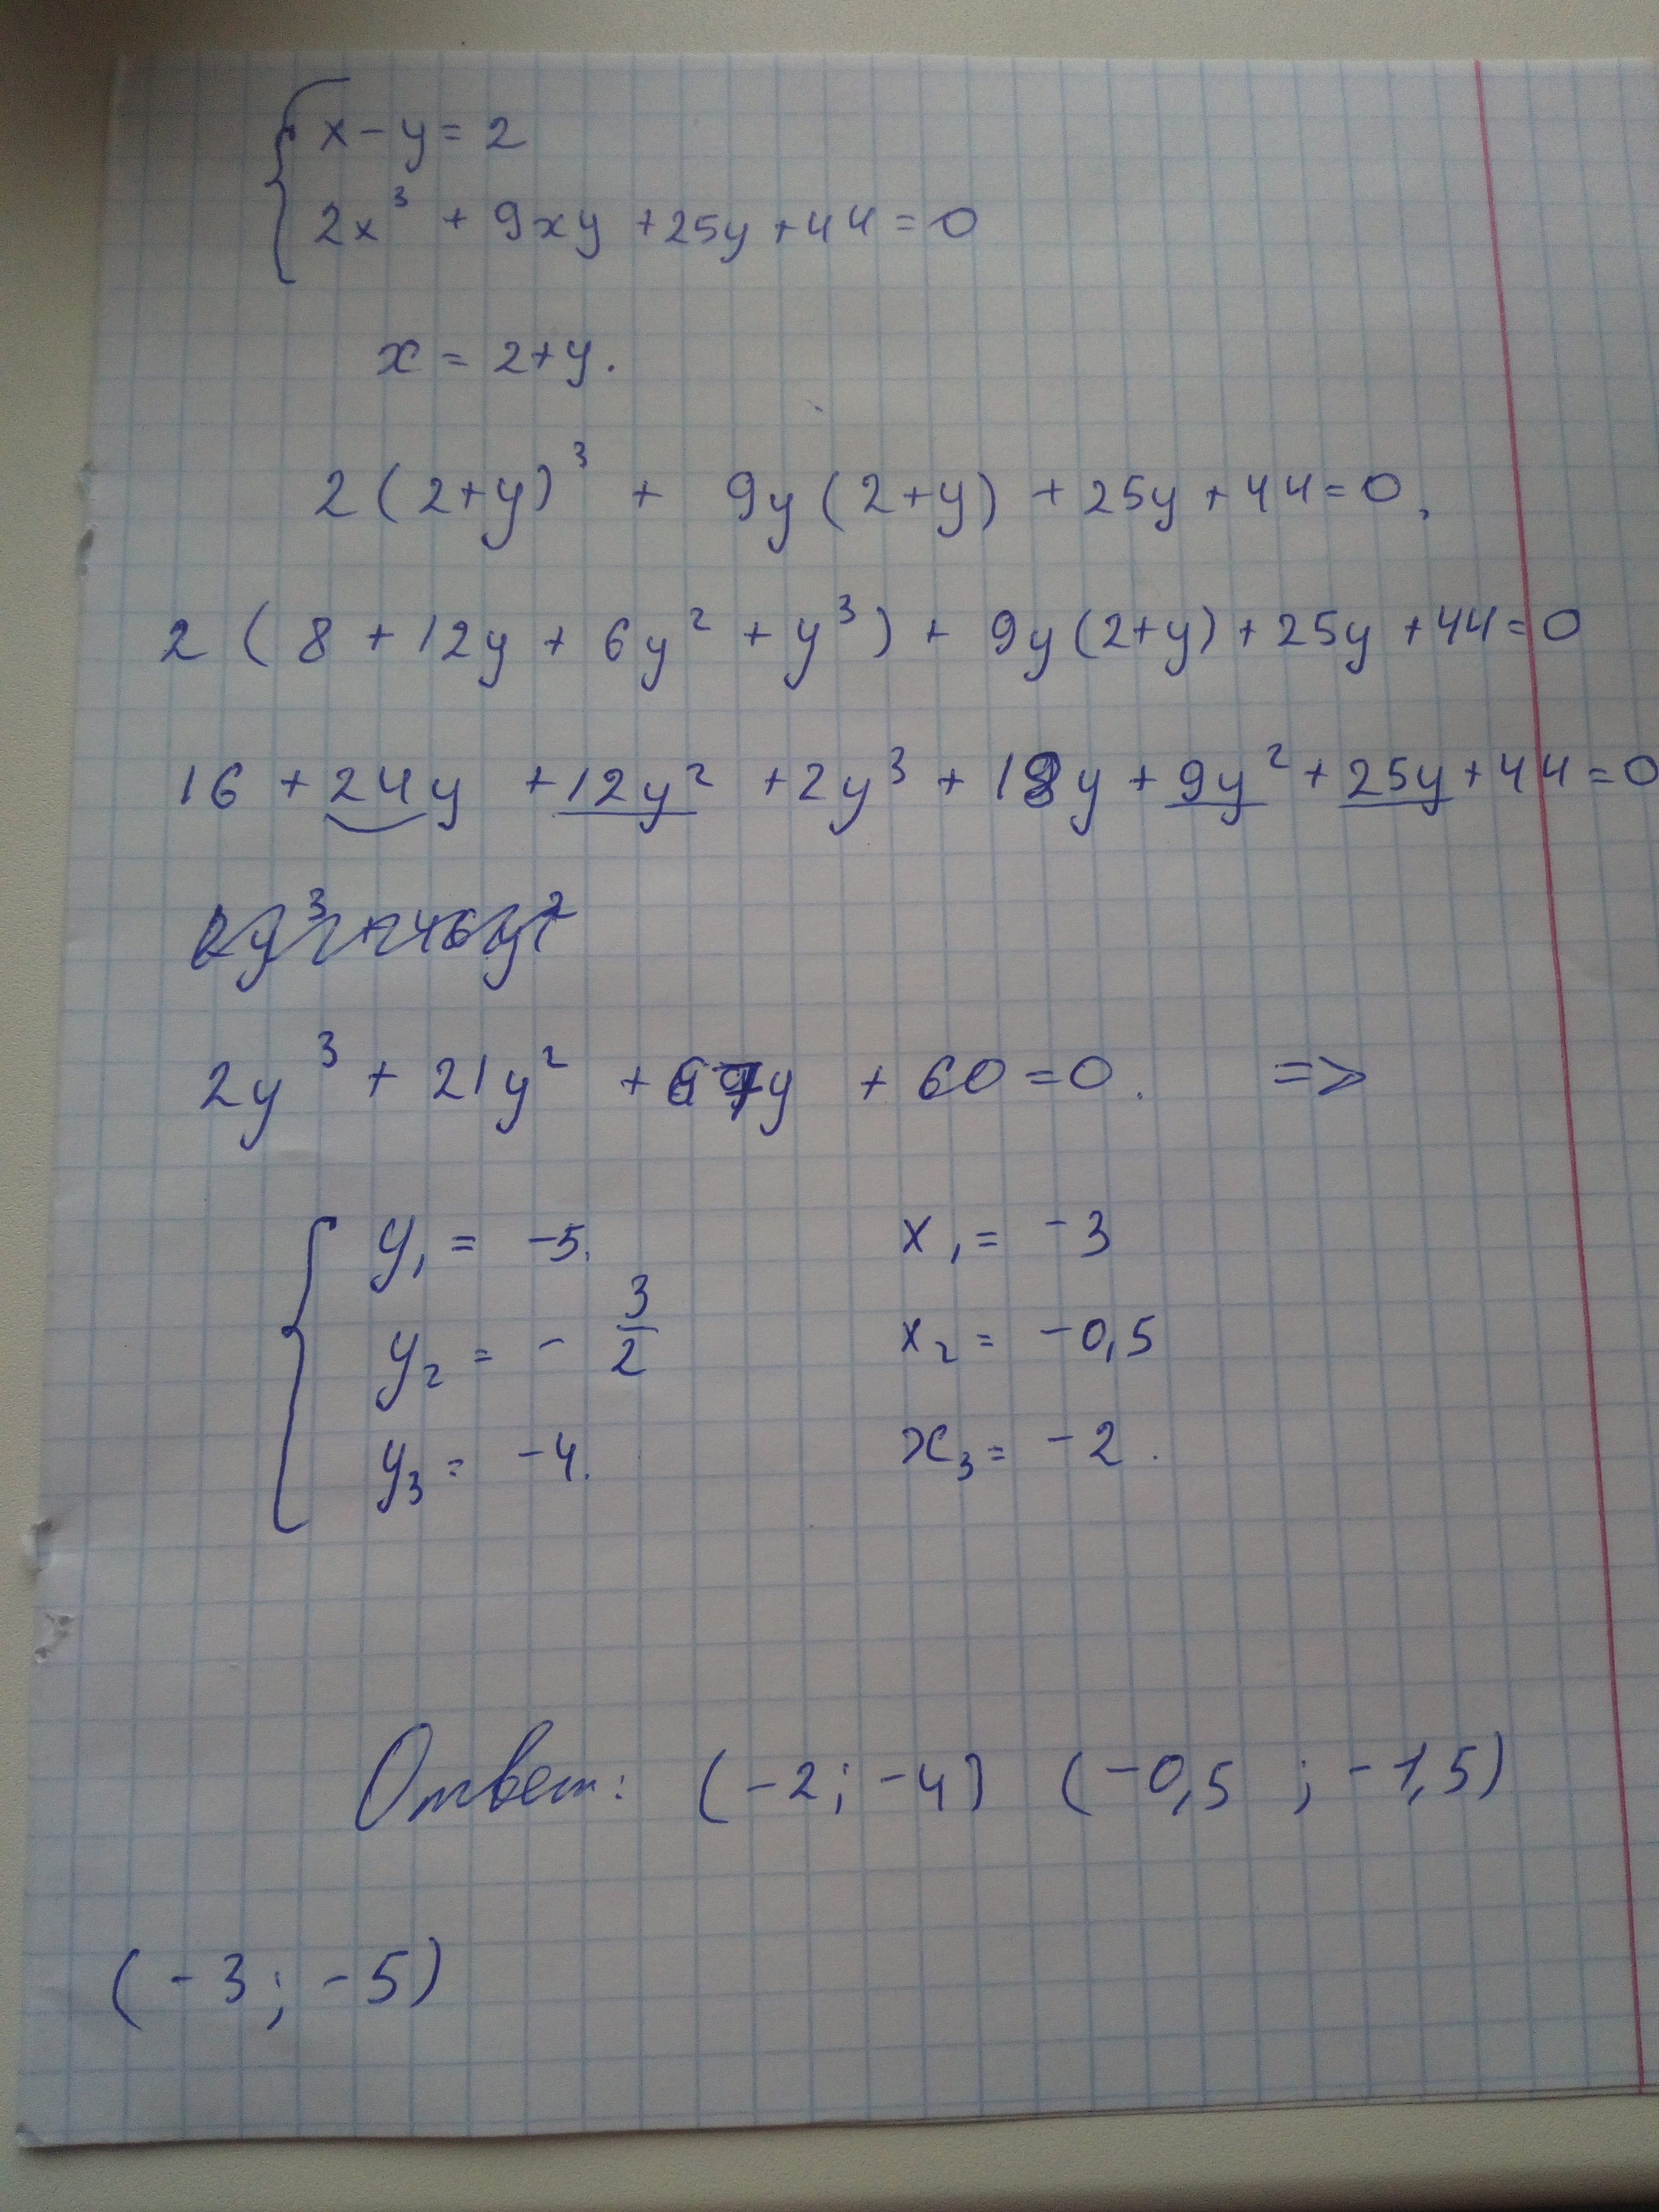 x - y = 2
2x³ + 9xy + 25y + 44 = 0
x = 2 + y.
2(2+y)³ + 9y(2+y) + 25y + 44 = 0,
2(8 + 12y + 6y² + y³) + 9y(2+y) + 25y + 44 = 0
16 + 24y + 12y² + 2y³ + 18y + 9y² + 25y + 44 = 0
2y³ + 46y²
2y³ + 21y² + 67y + 60 = 0. =>
y₁ = -5. x₁ = -3
y₂ = - 3/2 x₂ = -0,5
y₃ = -4. x₃ = -2.
Ответ: (-2; -4) (-0,5 ; -1,5)
(-3; -5)